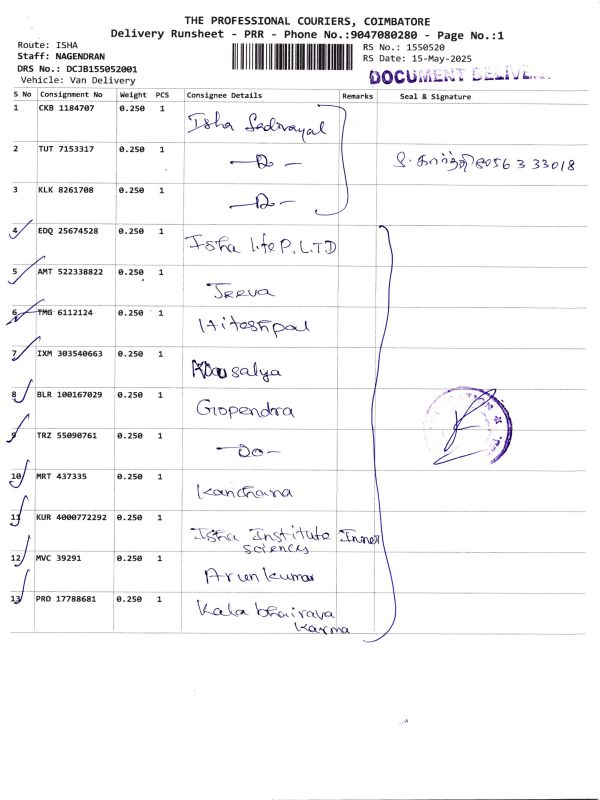 THE PROFESSIONAL COURIERS, COIMBATORE
Delivery Runsheet - PRR - Phone No.:9047080280 - Page No.:1
Route: ISHA
Staff: NAGENDRAN
DRS No.: DCJB155052001
Vehicle: Van Delivery
RS No.: 1550520
RS Date: 15-May-2025
DOCUMENT DELIVER
S No Consignment No Weight PCS Consignee Details Remarks Seal & Signature
1 CKB 1184707 0.250 1 Isha Sadivayal
2 TUT 7153317 0.250 1 -Do- 8056 3 33018
3 KLK 8261708 0.250 1 -Do-
4 EDQ 25674528 0.250 1 Isha life P.LTD
5 AMT 522338822 0.250 1 Jeeva
6 TMG 6112124 0.250 1 Hiteshpal
7 IXM 303540663 0.250 1
8 BLR 100167029 0.250 1 Gopendra
9 TRZ 55090761 0.250 1 -Do-
10 MRT 437335 0.250 1 Kanchana
11 KUR 4000772292 0.250 1 Isha Institute Inner
sciences
12 MVC 39291 0.250 1 Arunkumar
13 PRO 17788681 0.250 1 Kala bhairava
Karma